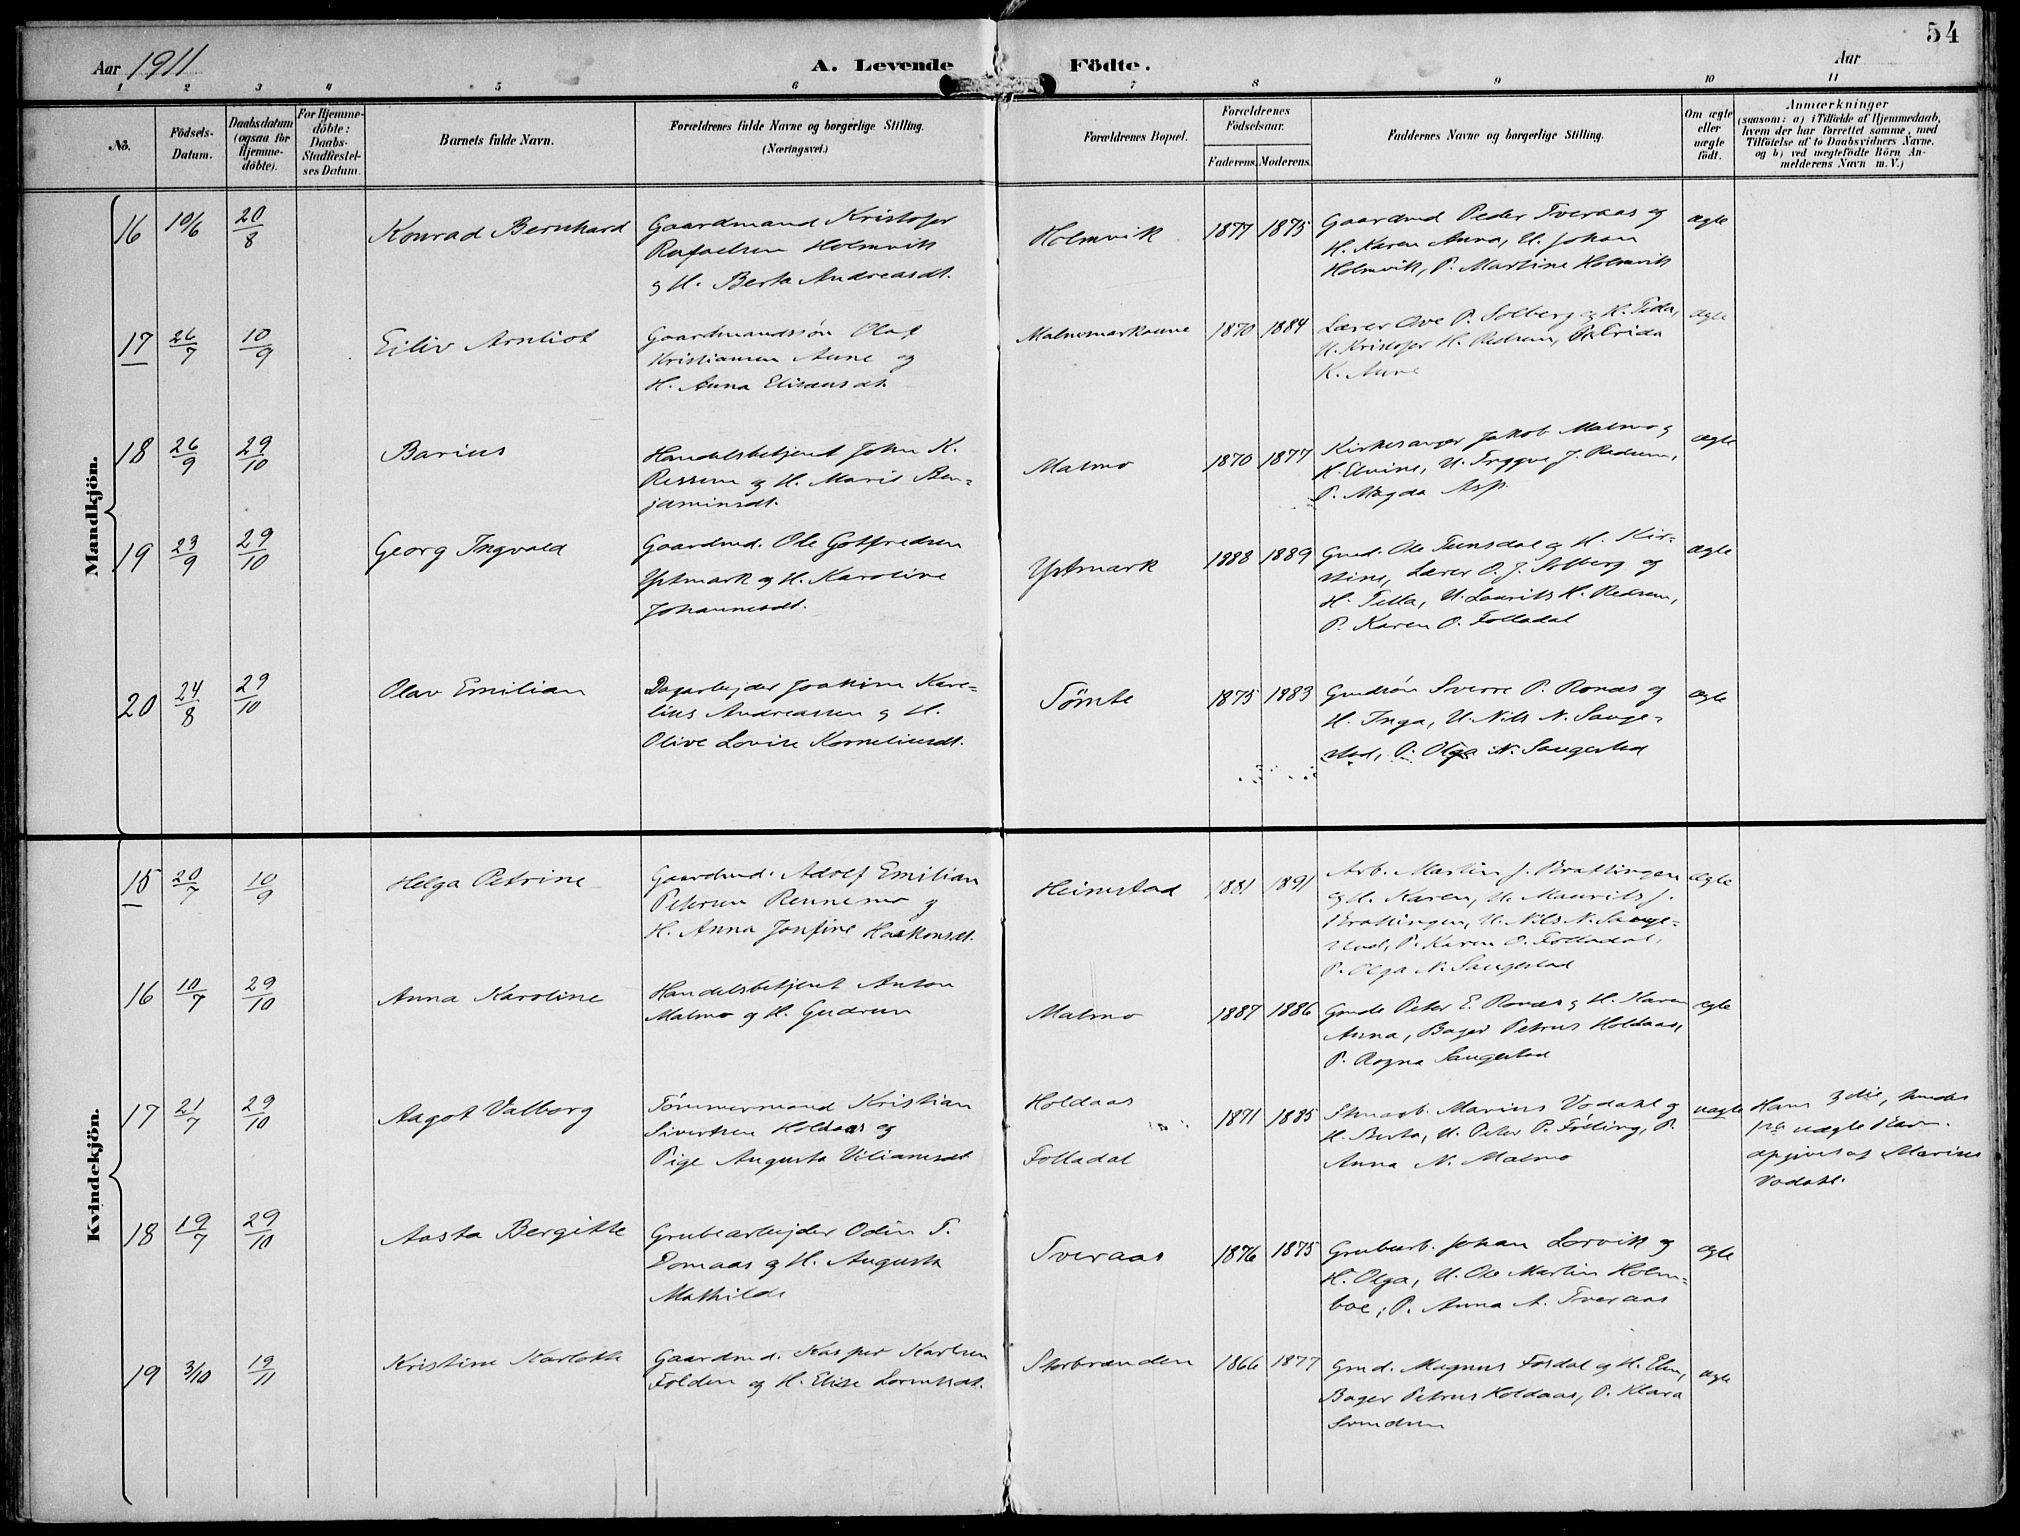 54
Aar 1911
A. Levende Födte.
Aar
1 2 3 4 5 6 7 8 9 10 11
No.
Födsels-
Datum.
Daabsdatum
(ogsaa for
Hjemme-
döbte).
For Hjemme-
döbte:
Daabs-
Stadfæstel-
ses Datum.
Barnets fulde Navn.
Forældrenes fulde Navne og borgerlige Stilling.
(Næringsvei.)
Forældrenes Bopæl.
Forældrenes
Födselsaar.
Faderens. Moderens.
Faddernes Navne og borgerlige Stilling.
Om ægte
eller
uægte
födt.
Anmærkninger
(saasom: a) i Tilfælde af Hjemmedaab,
hvem der har forrettet samme, med
Tilföielse af to Daabsvidners Navne,
og b) ved uægtefödte Börn An-
melderens Navn m. V.)
Mandkjön.
16 10/6 20/8 Konrad Bernhard
Gaardmand Kristofer
Rafaelsen Holmvik
og H. Berta Andreasdt.
Holmvik 1877 1875
Gaardmd Peder Tveraas og
H. Karen Anna, U. Johan
Holmvik, P. Martine Holmvik
ægte
17 26/7 10/9 Eiliv Arnliot
Gaardmandssøn Olaf
Kristiansen Aune og
H. Anna Eliseusdt.
Malmomarkaune 1870 1884
Lærer Ove P. Solberg og H. Tilda,
U. Kristofer H. Redsem, P. Frida
K. Aune
ægte
18 26/9 29/10 Barius
Handelsbetjent John K.
Ressem og H. Marit Ben-
jaminsdt.
Malmo 1870 1877
Kirkesanger Jakob Malmo og
H. Elvine, U. Tryggve J. Redsem,
P. Magda Asp.
ægte
19 23/9 29/10 Georg Ingvald
Gaardmd. Ole Gotfredsen
Ystmark og H. Karoline
Johannesdt.
Ystmark 1888 1889
Gmd. Ole Tunsdal og H. Kir-
stine, Lærer O. J. Solberg og
H. Tella, U. Laurits H. Redsem,
P. Karen O. Folladal
ægte
20 24/8 29/10 Olav Emilian
Dagarbejder Joakim Kare-
lius Andreassen og H.
Olive Lovise Korneliusdt.
Tömte 1875 1883
Gmdsön Sverre P. Ronæs og
H. Inga, U. Nils N. Sauge-
stad, P. Olga N. Saugestad
ægte
Kvindekjön.
15 20/7 10/9 Helga Petrine
Gaardmd. Adolf Emilian
Petersen Rennemo og
H. Anna Josefine Haakonsdt.
Heimstad 1881 1891
Arb. Martin J. Brattingen
og H. Karen, U. Maurits J.
Brattingen, U. Nils N. Sauge-
stad, P. Karen O. Folladal,
P. Olga N. Saugestad
ægte
16 10/7 29/10 Anna Karoline
Handelsbetjent Anton
Malmo og H. Gudrun
Malmo 1887 1886
Gmd. Peter E. Ronæs og H. Karen
Anna, Bager Petrus Holdaas,
P. Ragna Saugestad
ægte
17 21/7 29/10 Aagot Valborg
Tömmermand Kristian
Sivertsen Holdaas og
Pige Augusta Viliamsdt.
Holdaas
Folladal
1871 1885
Marius Vodahl og
H. Berta, U. Peter P. Fölling, P.
Anna N. Malmo
uægte
Hans 3die, hendes
1ste uægte Barn.
opgivet af Marius
Vodahl.
18 19/7 29/10 Aasta Bergitte
Grubearbejder Odin T.
Domaas og H. Augusta
Mathilde
Tveraas 1876 1875
Grubearb. Johan Lorvik og
H. Olga, U. Ole Martin Holm-
boe, P. Anna A. Tveraas
ægte
19 3/10 19/11 Kristine Karlotte
Gaardmd. Kasper Karlsen
Folden og H. Elise Lorntsdt.
Storbranden 1866 1877
Gmd. Magnus Fosdal og H. Elen,
Bager Petrus Holdaas, P. Klara
Svendsen
ægte